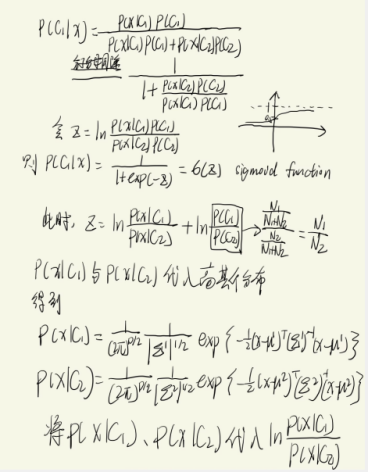 P(C₁|x) = P(x|C₁)P(C₁) / (P(x|C₁)P(C₁)+P(x|C₂)P(C₂))
1 / (1 + P(x|C₂)P(C₂) / P(x|C₁)P(C₁))
令 z = ln P(x|C₁)P(C₁) / P(x|C₂)P(C₂)
则 P(C₁|x) = 1 / (1+exp(-z)) = σ(z) sigmoid function
此时, z = ln P(x|C₁) / P(x|C₂) + ln P(C₁) / P(C₂) → (N₁ / (N₁+N₂)) / (N₂ / (N₁+N₂)) = N₁ / N₂
P(x|C₁)与P(x|C₂)代入高斯分布
得到
P(x|C₁) = 1/(2π)^(D/2) 1/|Σ¹|^(1/2) exp{-1/2(x-μ¹)ᵀ(Σ¹)⁻¹(x-μ¹)}
P(x|C₂) = 1/(2π)^(D/2) 1/|Σ²|^(1/2) exp{-1/2(x-μ²)ᵀ(Σ²)⁻¹(x-μ²)}
将P(x|C₁)、P(x|C₂)代入 ln P(x|C₁) / P(x|C₂)